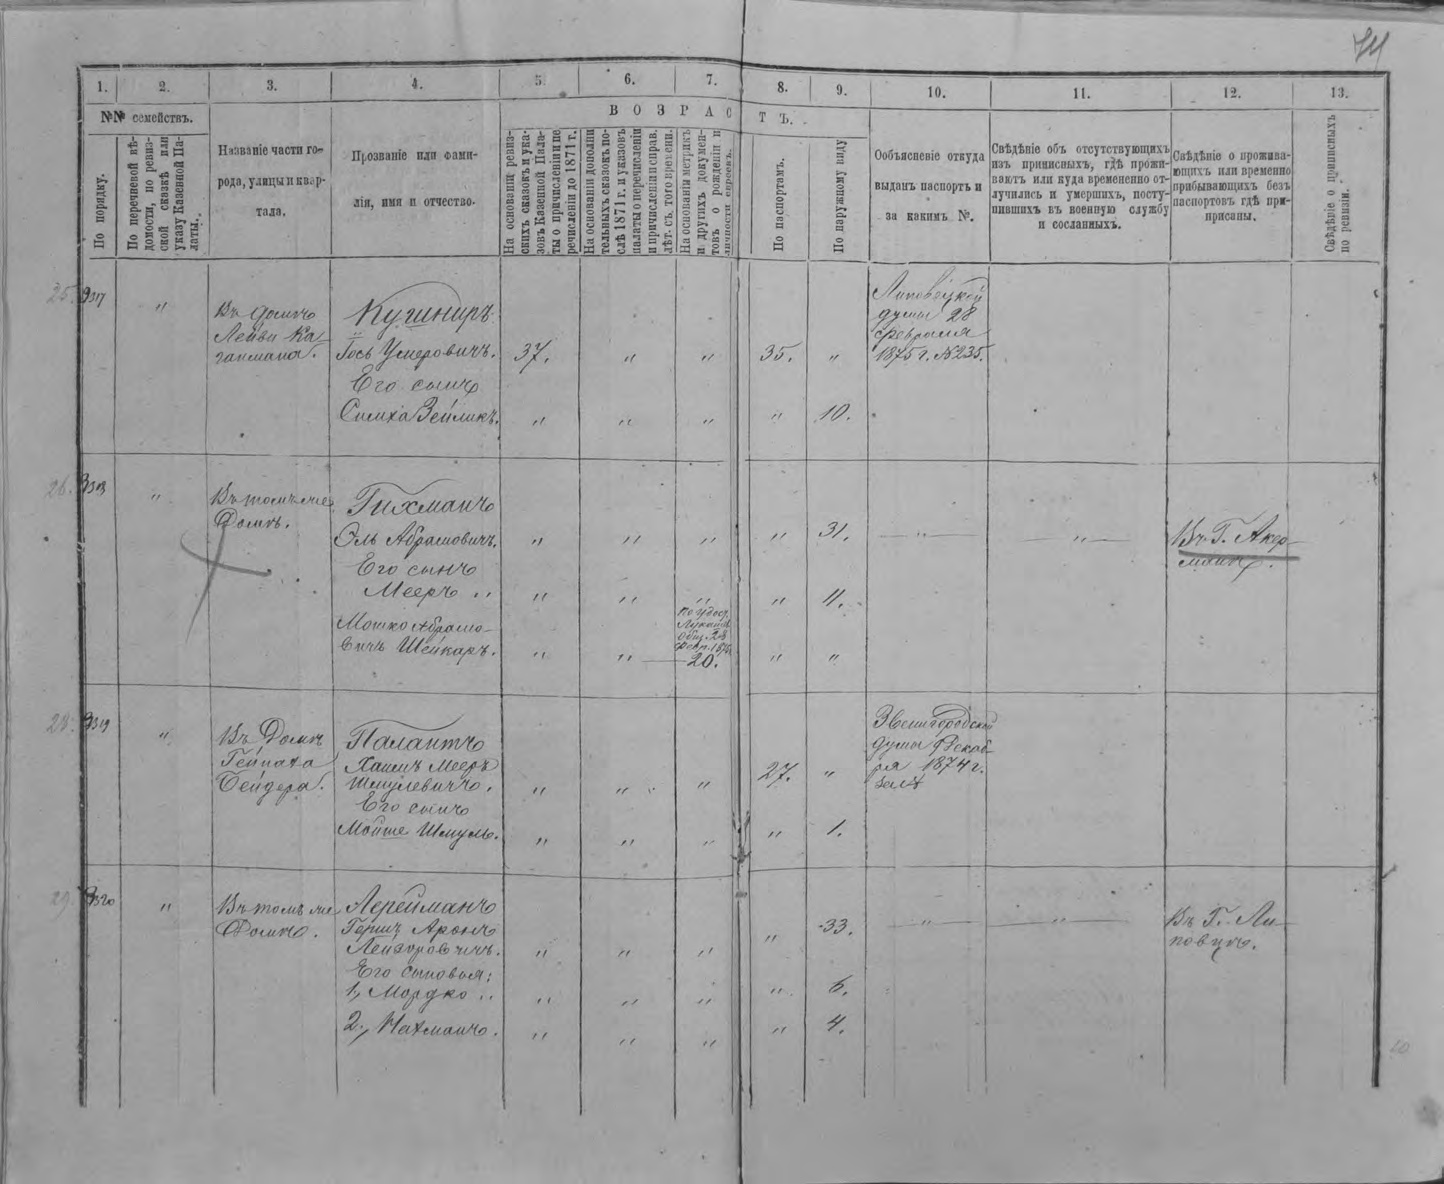 74
1. 2. 3. 4. 5. 6. 7. 8. 9. 10. 11. 12. 13.
№№ семействъ.
ВОЗРАСТЪ.
По порядку.
По перечневой вѣ-
домости, по ревиз-
ской сказкѣ или
указу Казенной Па-
латы.
Названіе части го-
рода, улицы и квар-
тала.
Прозваніе или фами-
лія, имя и отчество.
На основаніи ревиз-
скихъ сказокъ и ука-
зовъ Казенной Пала-
ты о причисленіи и пе
речисленіи до 1871 г.
На основаніи дополни
тельныхъ сказокъ по-
слѣ 1871 г. и указовъ
палаты о перечисленіи
и причисленіи и справ.
лѣт. съ того времени.
На основаніи метрикъ
и другихъ докумен-
товъ о рожденіи и
личности евреевъ.
По паспортамъ.
По наружному виду
Ообъясненіе откуда
выданъ паспортъ и
за какимъ №.
Свѣдѣніе объ отсутствующихъ
изъ приписныхъ, гдѣ прожи-
ваютъ или куда временно от-
лучились и умершихъ, посту-
пившихъ въ военную службу
и сосланныхъ.
Свѣдѣніе о прожива-
ющихъ или временно
прибывающихъ безъ
паспортовъ гдѣ при-
писаны.
Свѣдѣніе о приписныхъ
по ревизіи.
25. 317 "
Въ домѣ
Лейви Ка-
ганмана.
Кушниръ
Іось Умеровичъ. 37. " " 35. "
Его сынъ
Симха Зейликъ. " " " " 10.
Липовецкой
думы 28
февраля
1875 г. №235.
26. 318 "
Въ томъ же
домѣ.
Гихманъ
Эль Абрамовичъ. " " " " 31. " "
Его сынъ
Мееръ " " " " " 4.
Мошко Абрамо-
вичъ Шейкаръ. " " 20. " "
Въ Г. Акер-
манѣ.
28. 319 "
Въ Домѣ
Бейдера.
Палантъ
Хаимъ Мееръ
Шмулевичъ. " " " 27. "
Его сынъ
Мойше Шмуль. " " " " 1.
Звенигородской
думы Декаб-
ря 1874 г.
29. 320 "
Въ томъ же
Домѣ.
Лерейманъ
Гершъ Аронъ
Лейзоровичъ. " " " " 33. " "
Его сыновья:
1, Мордко " " " " " 6.
2., Нахманъ. " " " " 4.
Въ Г. Ли-
повцѣ.